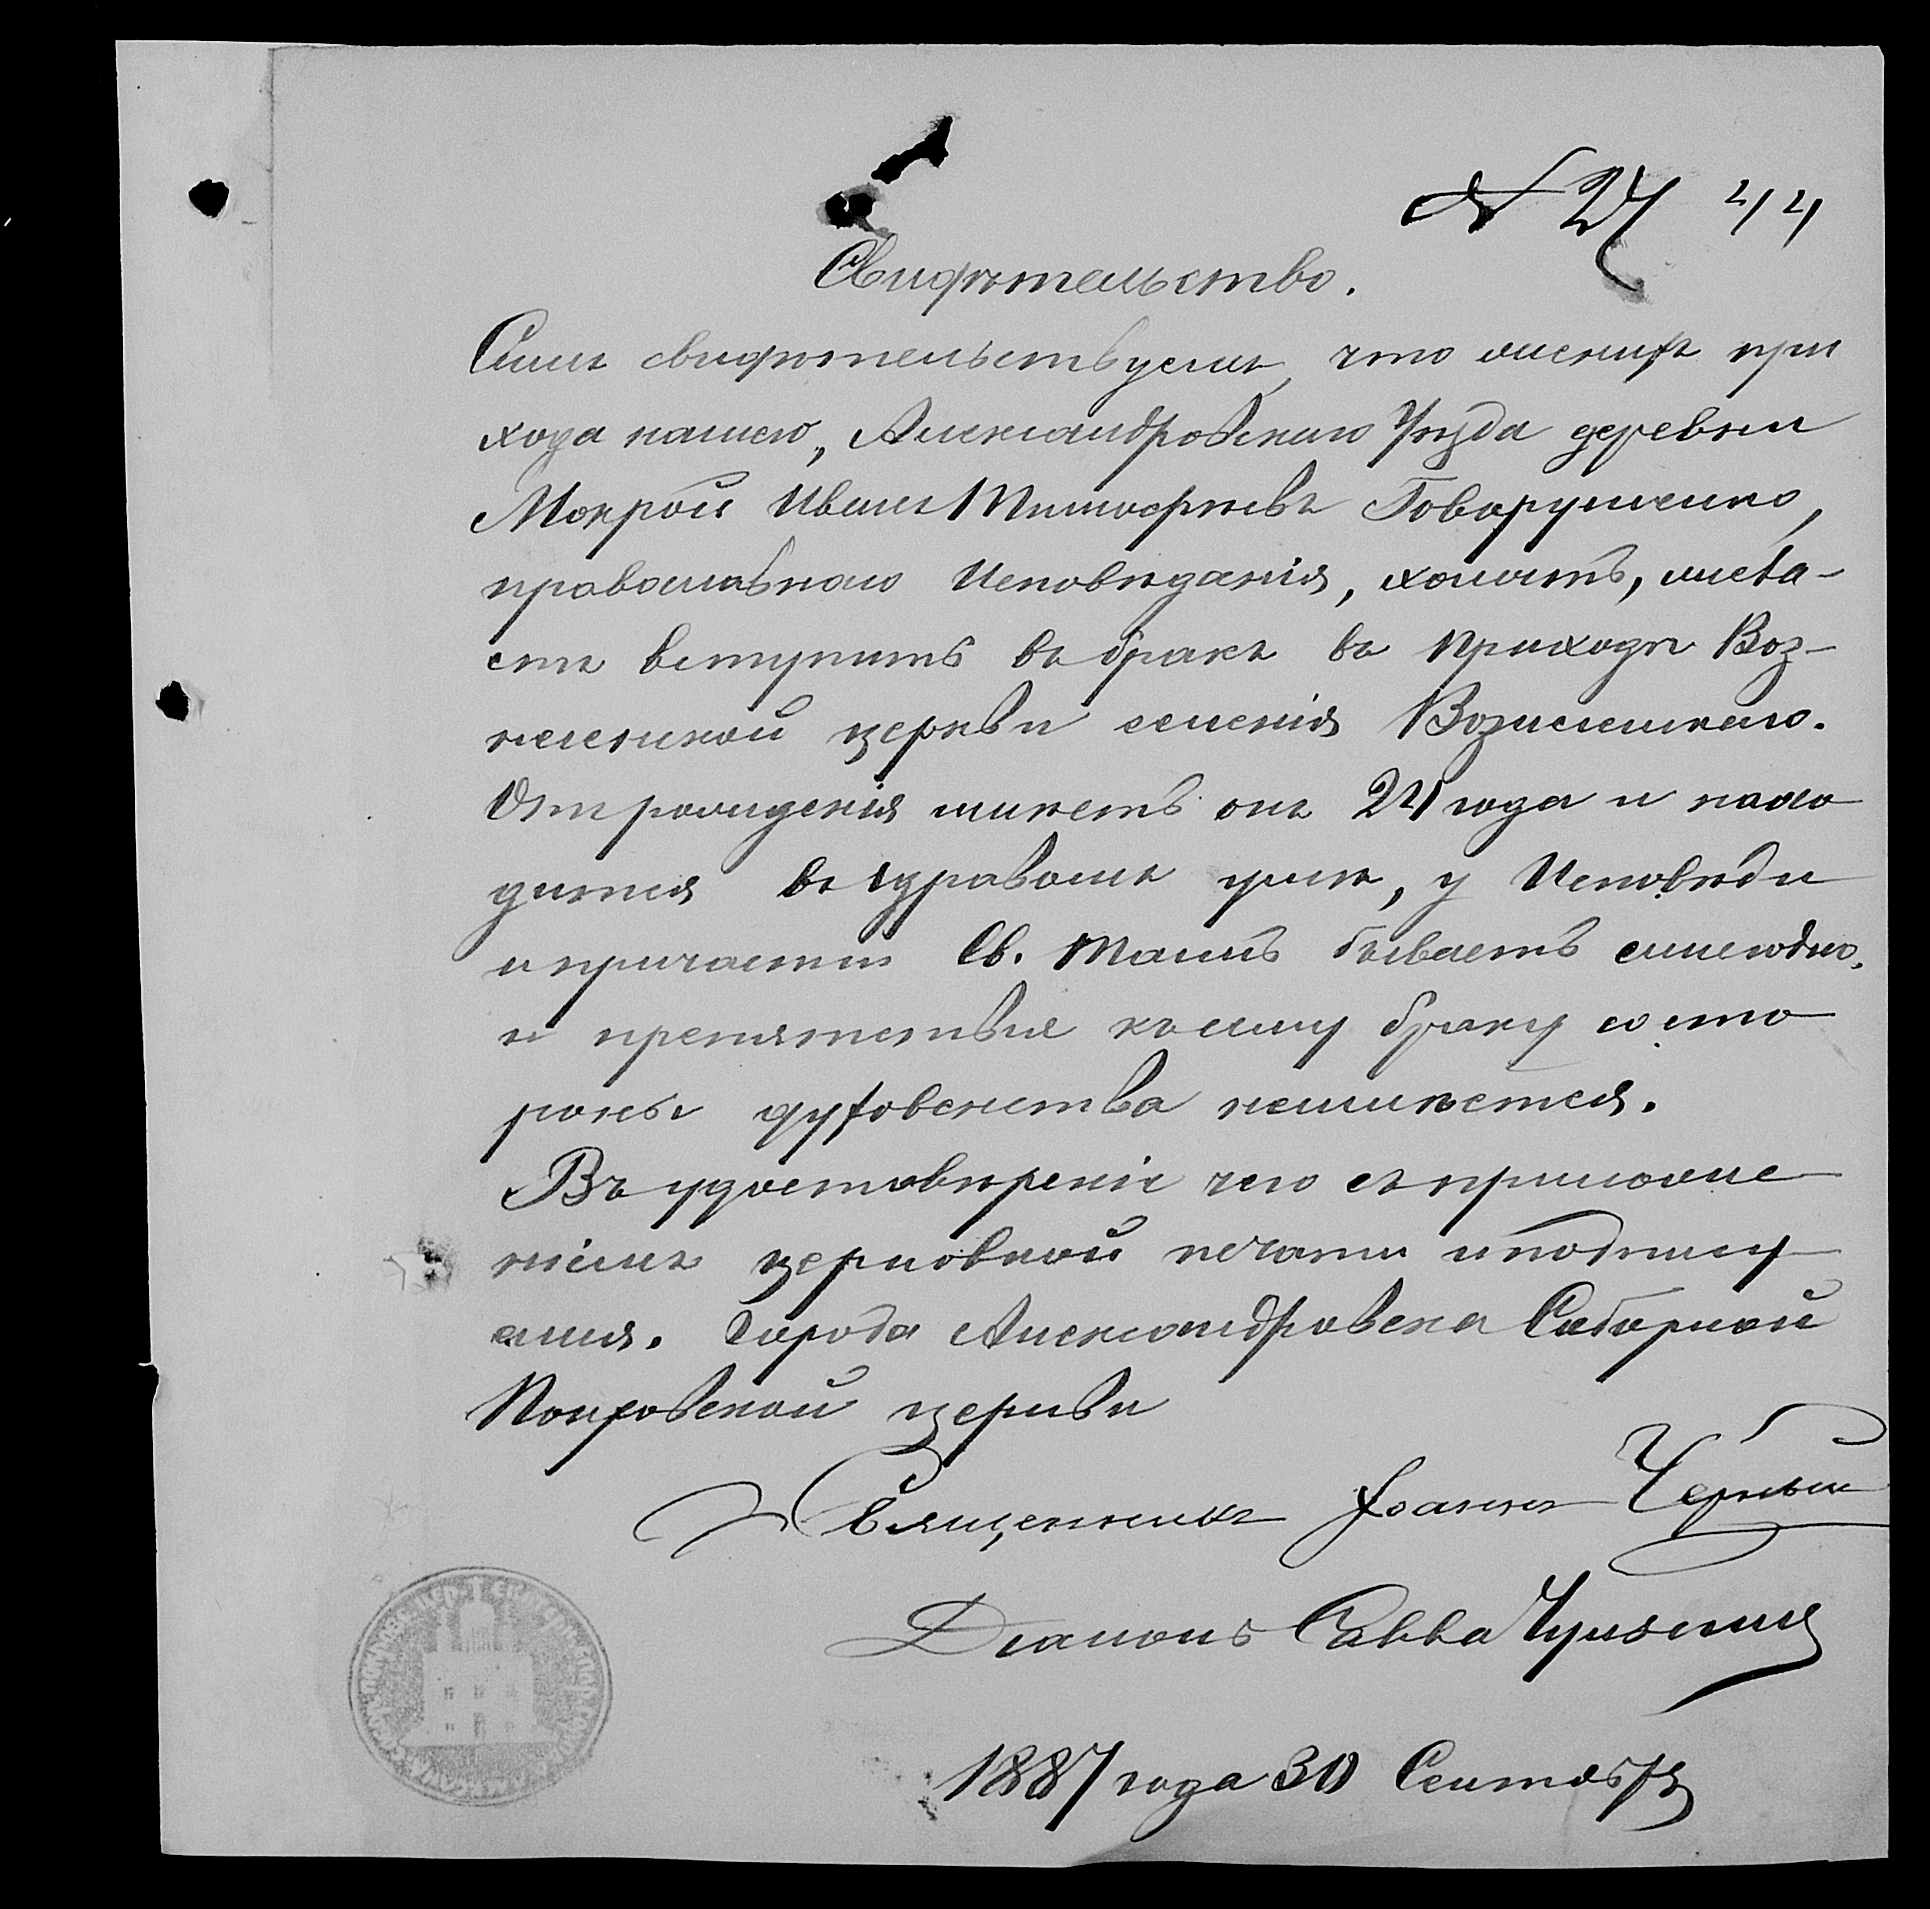 № 27 44
Свидѣтельство.
Симъ свидѣтельствуемъ, что житель при
хода нашего, Александровскаго Уѣзда деревни
Мокрой Иванъ Тимофѣевъ Говорушенко,
православнаго Исповѣданія, холостъ, жела-
етъ вступить въ бракъ въ Приходѣ Воз-
несенской церкви селенія Вознесенскаго.
Отъ рожденія имѣетъ онъ 24 года и нахо
дится въ здравомъ умѣ, у Исповѣди
и причастія Св. Таинъ бываетъ ежегодно,
и препятствія къ сему браку со сто
роны духовенства неимѣется.
Въ удостовѣреніе чего съ приложе
ніемъ церковной печати и подпису
емся. Города Александровска Соборной
Покровской церкви
Священникъ Іоаннъ Черный
Діаконъ Савва
1887 года 30 Сентября